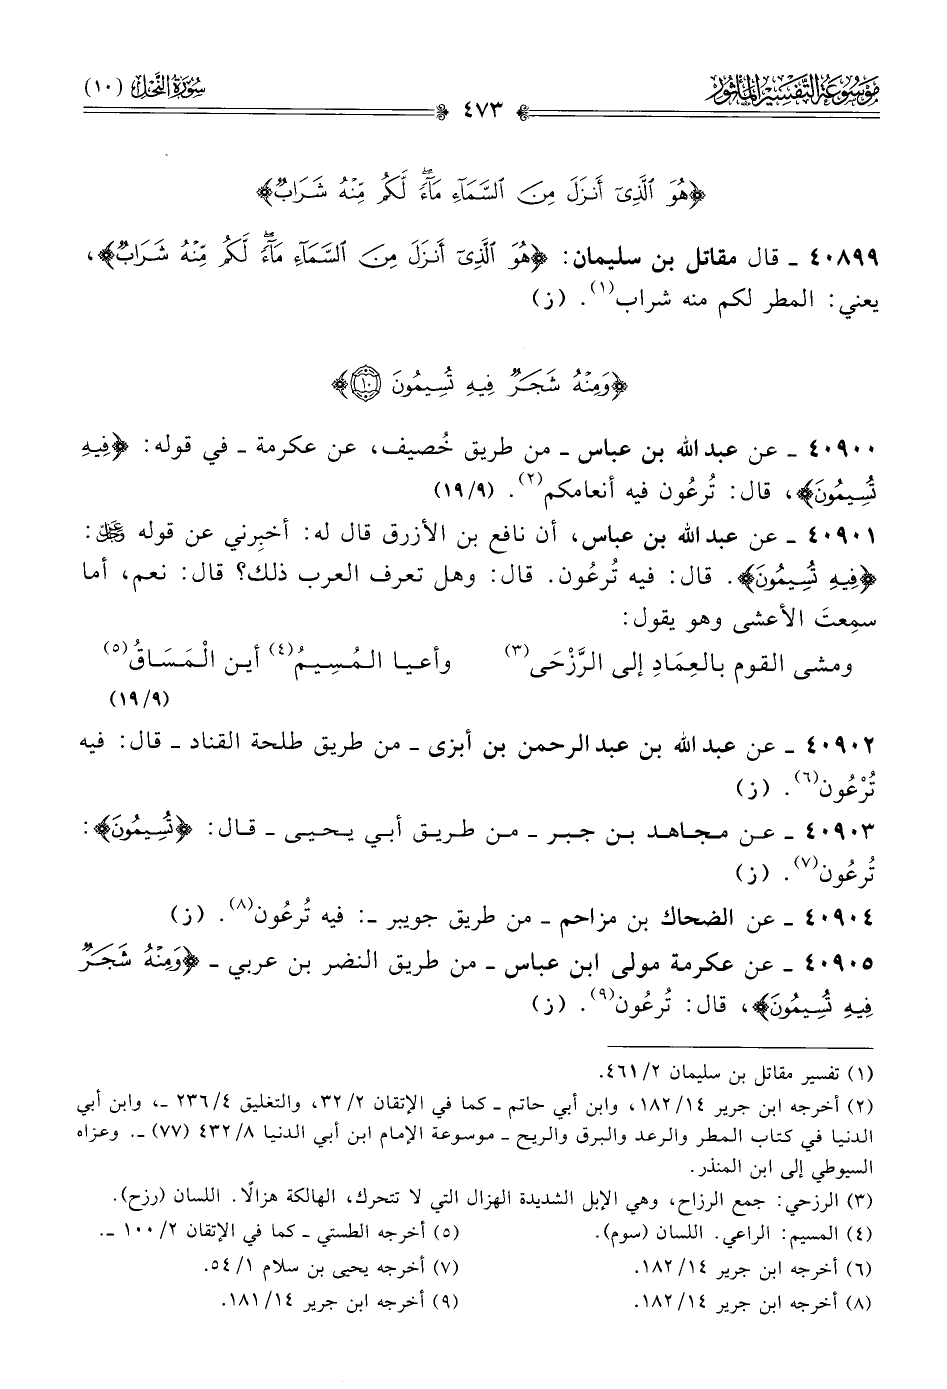 موسوعة التفسير المأثور
سورة النحل (١٠)
٤٧٣
﴿هُوَ ٱلَّذِىٓ أَنزَلَ مِنَ ٱلسَّمَآءِ مَآءًۖ لَّكُم مِّنْهُ شَرَابٌ﴾
٤٠٨٩٩ ـ قال مقاتل بن سليمان: ﴿هُوَ ٱلَّذِىٓ أَنزَلَ مِنَ ٱلسَّمَآءِ مَآءًۖ لَّكُم مِّنْهُ شَرَابٌ﴾،
يعني: المطر لكم منه شراب(١). (ز)
﴿وَمِنْهُ شَجَرٌ فِيهِ تُسِيمُونَ ١٠﴾
٤٠٩٠٠ ـ عن عبد الله بن عباس ـ من طريق خُصيف، عن عكرمة ـ في قوله: ﴿فِيهِ
تُسِيمُونَ﴾، قال: تُرعُون فيه أنعامكم(٢). (١٩/٩)
٤٠٩٠١ ـ عن عبد الله بن عباس، أن نافع بن الأزرق قال له: أخبِرني عن قوله ﷿:
﴿فِيهِ تُسِيمُونَ﴾. قال: فيه تُرعُون. قال: وهل تعرف العرب ذلك؟ قال: نعم، أما
سمِعتَ الأعشى وهو يقول:
ومشى القوم بالعِمَادِ إلى الرَّزْحَى(٣) وأعيا المُسِيمُ(٤) أين الْمَسَاقُ(٥)
(١٩/٩)
٤٠٩٠٢ ـ عن عبد الله بن عبد الرحمن بن أبزى ـ من طريق طلحة القناد ـ قال: فيه
تُرْعُون(٦). (ز)
٤٠٩٠٣ ـ عن مجاهد بن جبر ـ من طريق أبي يحيى ـ قال: ﴿تُسِيمُونَ﴾:
تُرعُون(٧). (ز)
٤٠٩٠٤ ـ عن الضحاك بن مزاحم ـ من طريق جويبر ـ: فيه تُرعُون(٨). (ز)
٤٠٩٠٥ ـ عن عكرمة مولى ابن عباس ـ من طريق النضر بن عربي ـ ﴿وَمِنْهُ شَجَرٌ
فِيهِ تُسِيمُونَ﴾، قال: تُرعُون(٩). (ز)
(١) تفسير مقاتل بن سليمان ٢/ ٤٦١.
(٢) أخرجه ابن جرير ١٤/ ١٨٢، وابن أبي حاتم ـ كما في الإتقان ٢/ ٣٢، والتغليق ٤/ ٢٣٦ ـ، وابن أبي
الدنيا في كتاب المطر والرعد والبرق والريح ـ موسوعة الإمام ابن أبي الدنيا ٨/ ٤٣٢ (٧٧) ـ. وعزاه
السيوطي إلى ابن المنذر.
(٣) الرزحي: جمع الرزاح، وهي الإبل الشديدة الهزال التي لا تتحرك، الهالكة هزالًا. اللسان (رزح).
(٤) المسيم: الراعي. اللسان (سوم). (٥) أخرجه الطستي ـ كما في الإتقان ٢/ ١٠٠ ـ.
(٦) أخرجه ابن جرير ١٤/ ١٨٢. (٧) أخرجه يحيى بن سلام ١/ ٥٤.
(٨) أخرجه ابن جرير ١٤/ ١٨٢. (٩) أخرجه ابن جرير ١٤/ ١٨١.